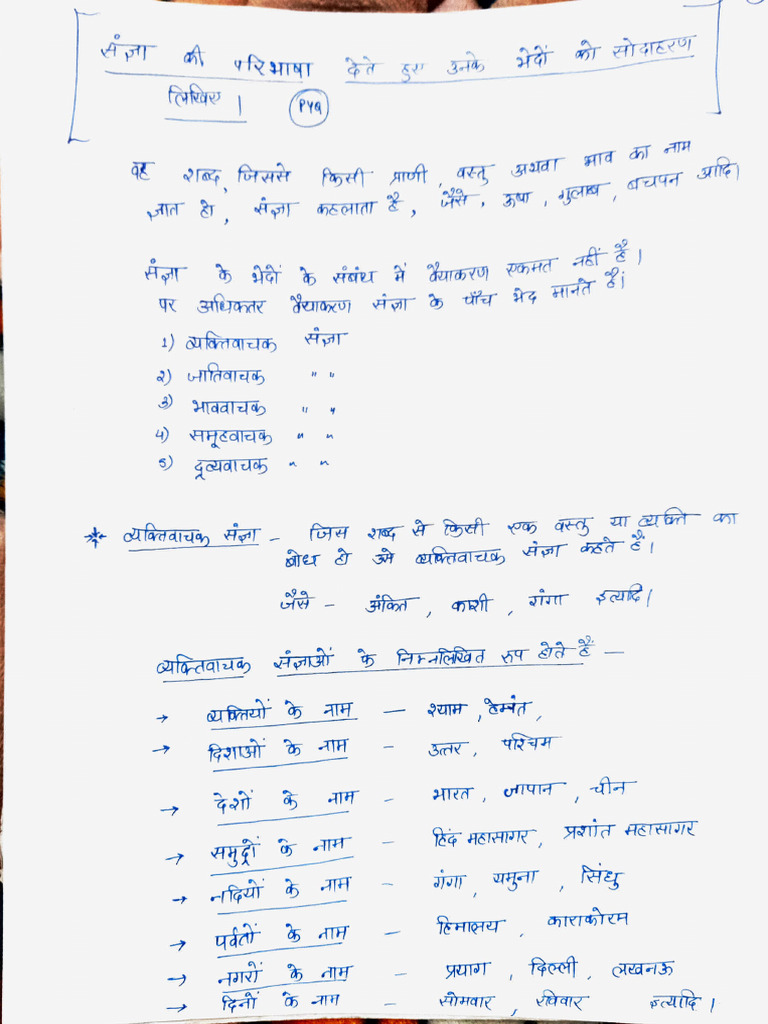 संज्ञा की परिभाषा देते हुए उनके भेदों को सोदाहरण
लिखिए। PYQ
वह शब्द, जिससे किसी प्राणी, वस्तु अथवा भाव का नाम
ज्ञात हो, संज्ञा कहलाता है, जैसे, ऊषा, गुलाब, बचपन आदि।
संज्ञा के भेदों के संबंध में वैयाकरण एकमत नहीं है।
पर अधिकतर वैयाकरण संज्ञा के पाँच भेद मानते हैं।
1) व्यक्तिवाचक संज्ञा
2) जातिवाचक " "
3) भाववाचक " "
4) समूहवाचक " "
5) द्रव्यवाचक " "
* व्यक्तिवाचक संज्ञा - जिस शब्द से किसी एक वस्तु या व्यक्ति का
बोध हो उसे व्यक्तिवाचक संज्ञा कहते हैं।
जैसे - अंकित, काशी, गंगा इत्यादि।
व्यक्तिवाचक संज्ञाओं के निम्नलिखित रुप होते हैं -
→ व्यक्तियों के नाम - श्याम, हेमंत,
→ दिशाओं के नाम - उत्तर, पश्चिम
→ देशों के नाम - भारत, जापान, चीन
→ समुद्रों के नाम - हिंद महासागर, प्रशांत महासागर
→ नदियों के नाम - गंगा, यमुना, सिंधु
→ पर्वतों के नाम - हिमालय, काराकोरम
→ नगरों के नाम - प्रयाग, दिल्ली, लखनऊ
→ दिनों के नाम - सोमवार, रविवार इत्यादि।